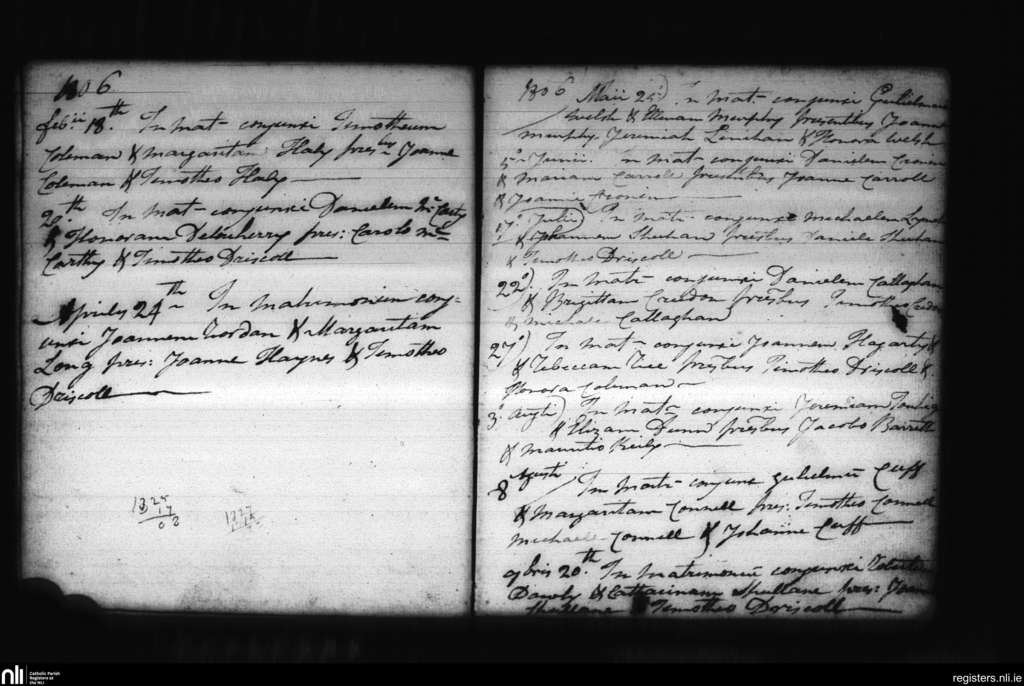 1806
feb:ii 18.th In mat- conjunxi Timotheum
Coleman & Margaritam Haly pres:by Joanne
Coleman & Timotheo Haly
20.th In mat- conjunxi Danielem Mc Carty
& Honoram Deloüherry pres: Carolo Mc
Carthy & Timotheo Driscoll
Aprilis 24th In matrimonium conj-
unxi Joannem Riordan & Margaritam
Long pres: Joanne Haynes & Timotheo
Driscoll
1806 Maii 25) In mat- conjunxi Gulielmum
Welsh & Elenam Murphy presentibus Joanne
Murphy, Jeremiah Linihan & Honora Welsh
5º Junii. In mat- conjunxi Danielem Cronin
& Mariam Carroll presentibus Joanne Carroll
& Joanne Cronin
Julii) In mat- conjunxi Michaelem Lynch
& Johannem Sheehan presbus Daniele Sheehan
& Timotheo Driscoll
22º) In mat- conjunxi Danielem Callaghan
& Brigittam Creedon presbus Timotheo
& Michaele Callaghan
27º) In mat- conjunxi Joannem Hagarty &
& Rebeccam Rice presbus Timotheo Driscoll &
Honora Coleman
3º Augti) In mat- conjunxi Jeremiam
& Elizam Dunn presbus Jacobo Barrett
& Mauritio Reily
8 Agusti In mat- conjunx gulielmũ Cuff
& Margaritam Connell pres: Timotheo Connell
Michaele Connell & Johanne Cuff
9bris 20.th In Matrimoniũ conjunxi
Dawly & Catharinam Shullane pres:
Shullane & Timotheo Driscoll
1325
17
08
1327
nli
Catholic Parish
Registers at
the NLI
registers.nli.ie